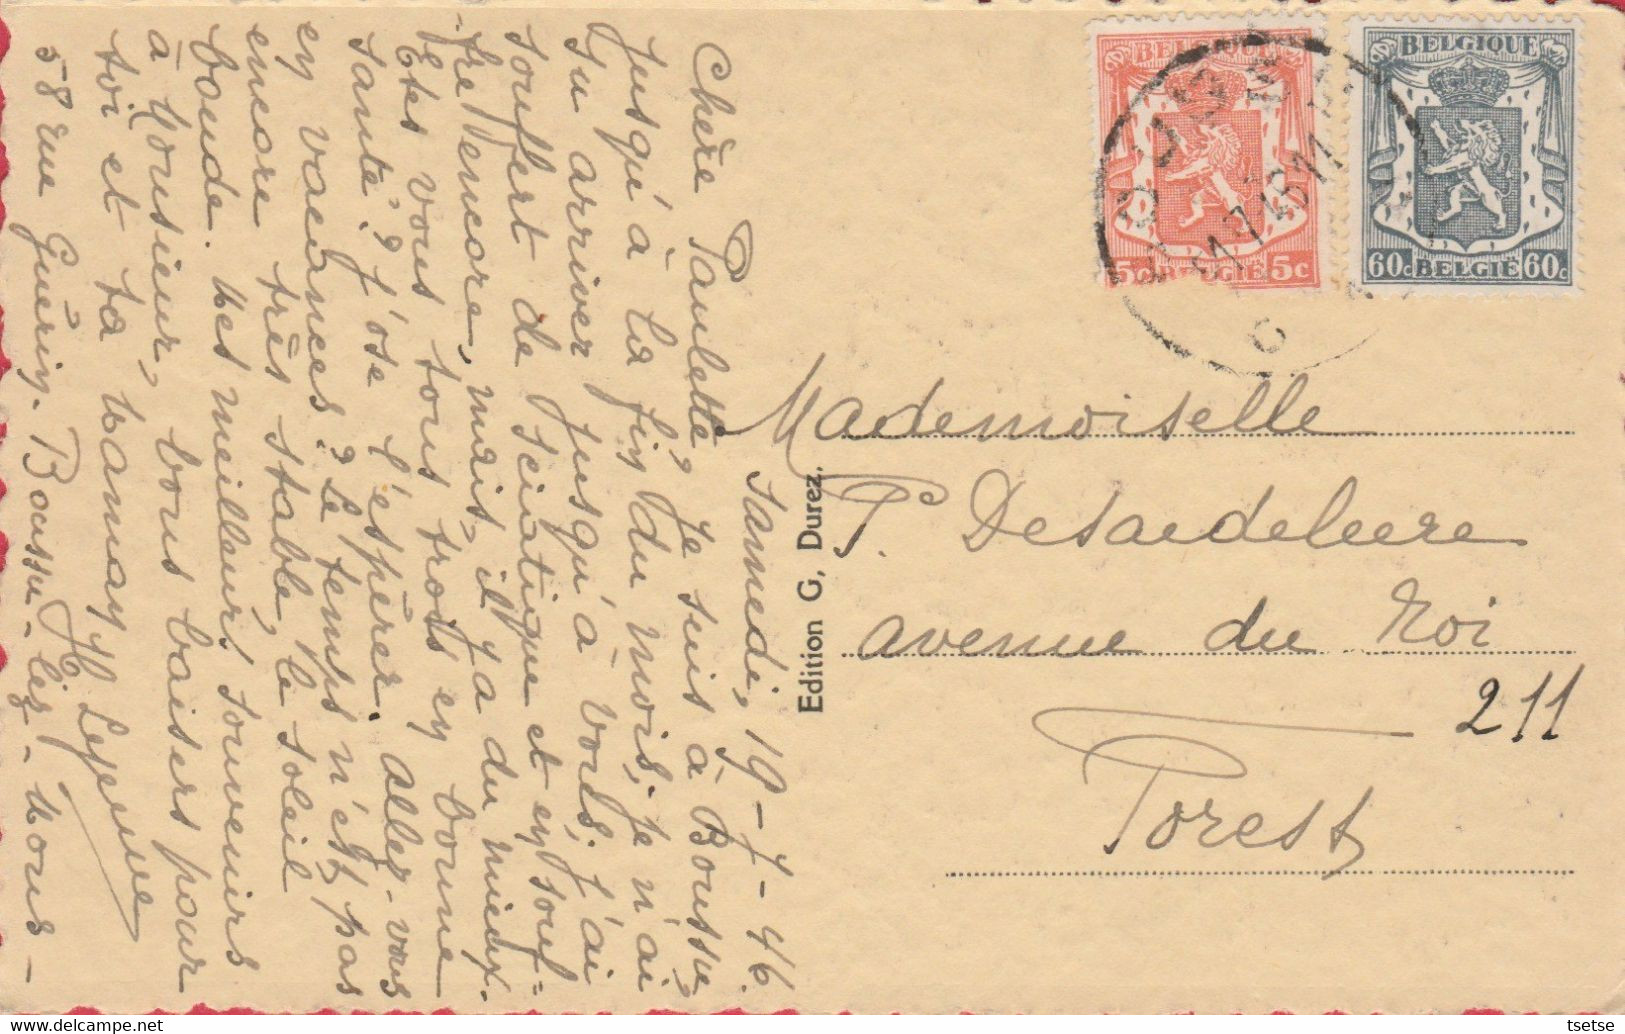 Samedi, 19-7-46.
Chère Paulette, Je suis à Boussu
jusqu'à la fin du mois, je n'ai
su arriver jusqu'à vous, j'ai
souffert de sciatique et en souf=
fre encore, mais, il y a du mieux.
Etes vous tous trois en bonne
santé? J'ose l'espérer. Allez-vous
en vacances? Le temps n'est pas
encore très stable, le soleil
boude. Mes meilleurs souvenirs
à Monsieur, bons baisers pour
toi et ta maman H Lejeune
58 rue Guérin. Boussu-lez-Mons-
Edition G, Durez.
BELGIQUE
5c BELGIE 5c
BELGIQUE
60c BELGIE 60c
Mademoiselle
P. Desaedeleere
avenue du Roi
211
Forest
tsetse